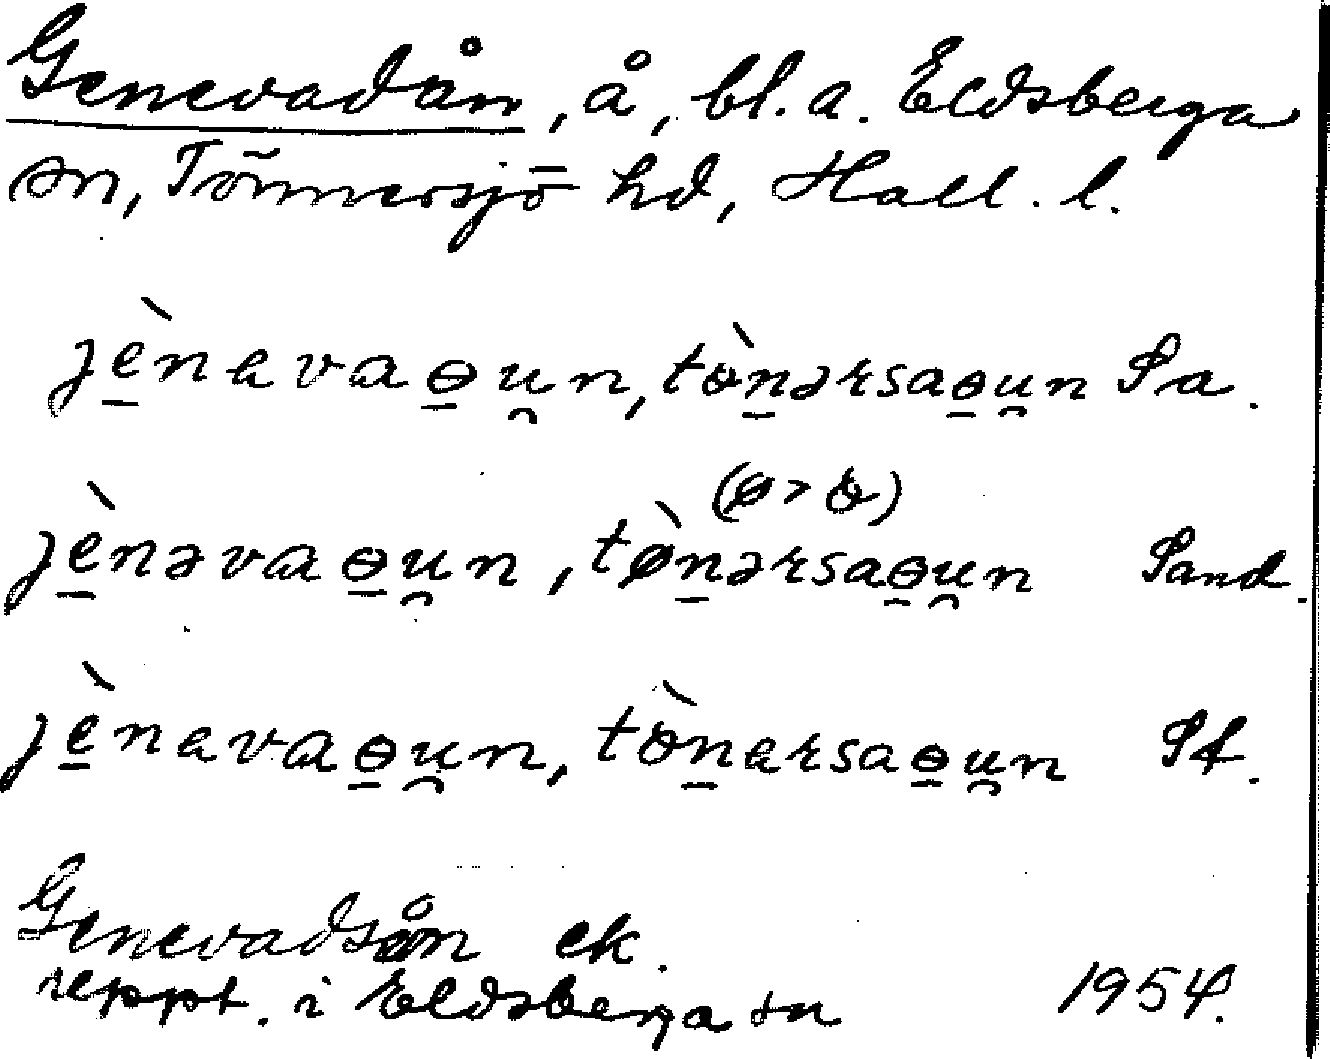 Genevadån, å, bl. a. Eldsberga
sn, Tönnersjö hd, Hall. l.
jè̠navaɵ̠u̯n, tòn̠ərsaɵ̠u̯n Sa.
(ø > ò)
jè̠nəvaɵ̠u̯n, tø̀n̠ərsaɵ̠u̯n Sand.
jè̠navaɵ̠u̯n, tòn̠arsaɵ̠u̯n St.
Genevadsån ek.
reppt. i Eldsberga sn 1954.